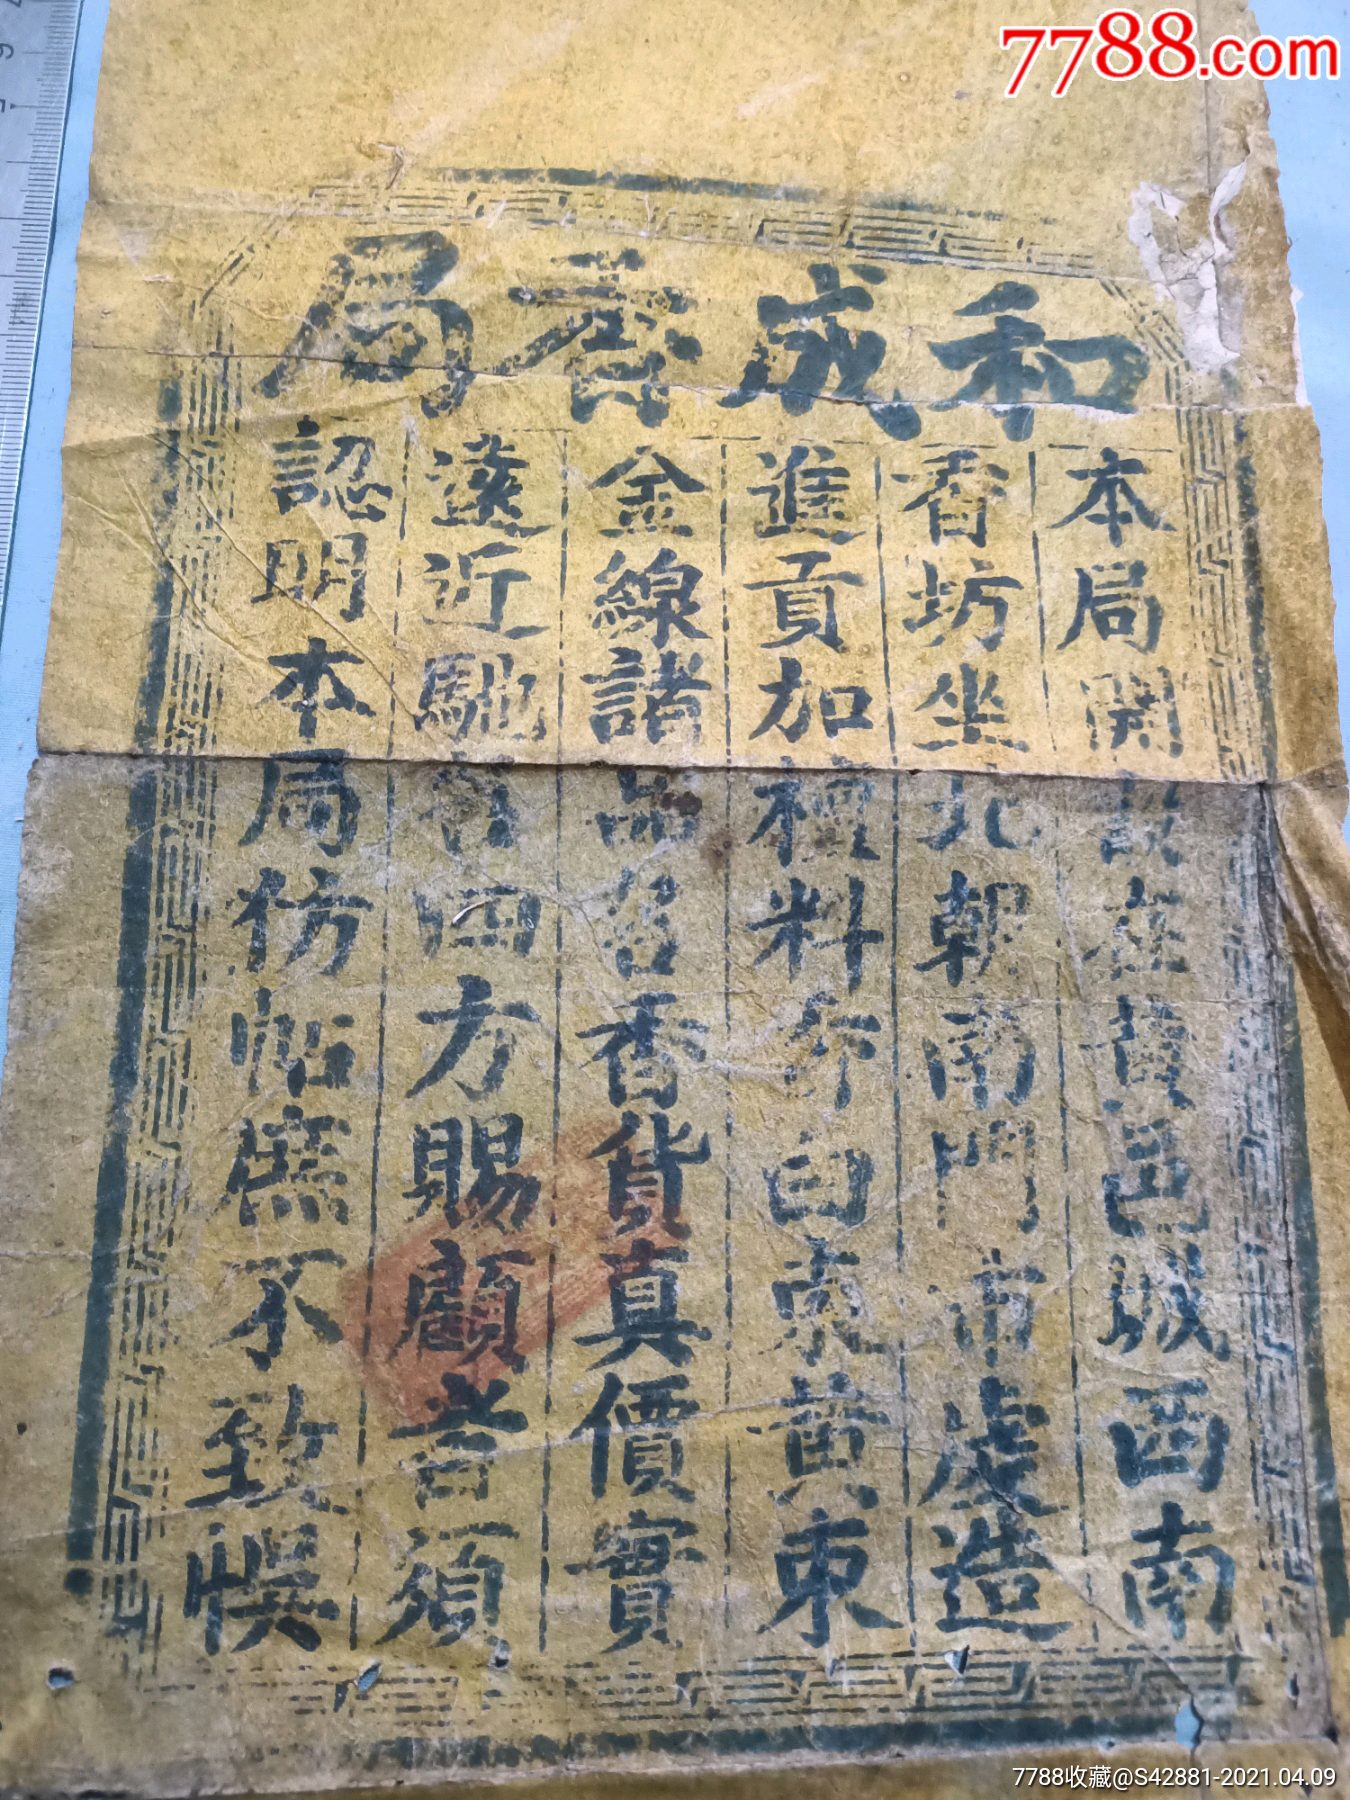 7788.com
和成香局
本局開設在黄邑城西南
香坊坐北朝南門市處造
進貢加檀料
束黄束
金線諸品名香貨真價實
遠近馳名四方賜顧者須
認明本局仿帖庶不致悮
7788收藏@S42881-2021.04.09